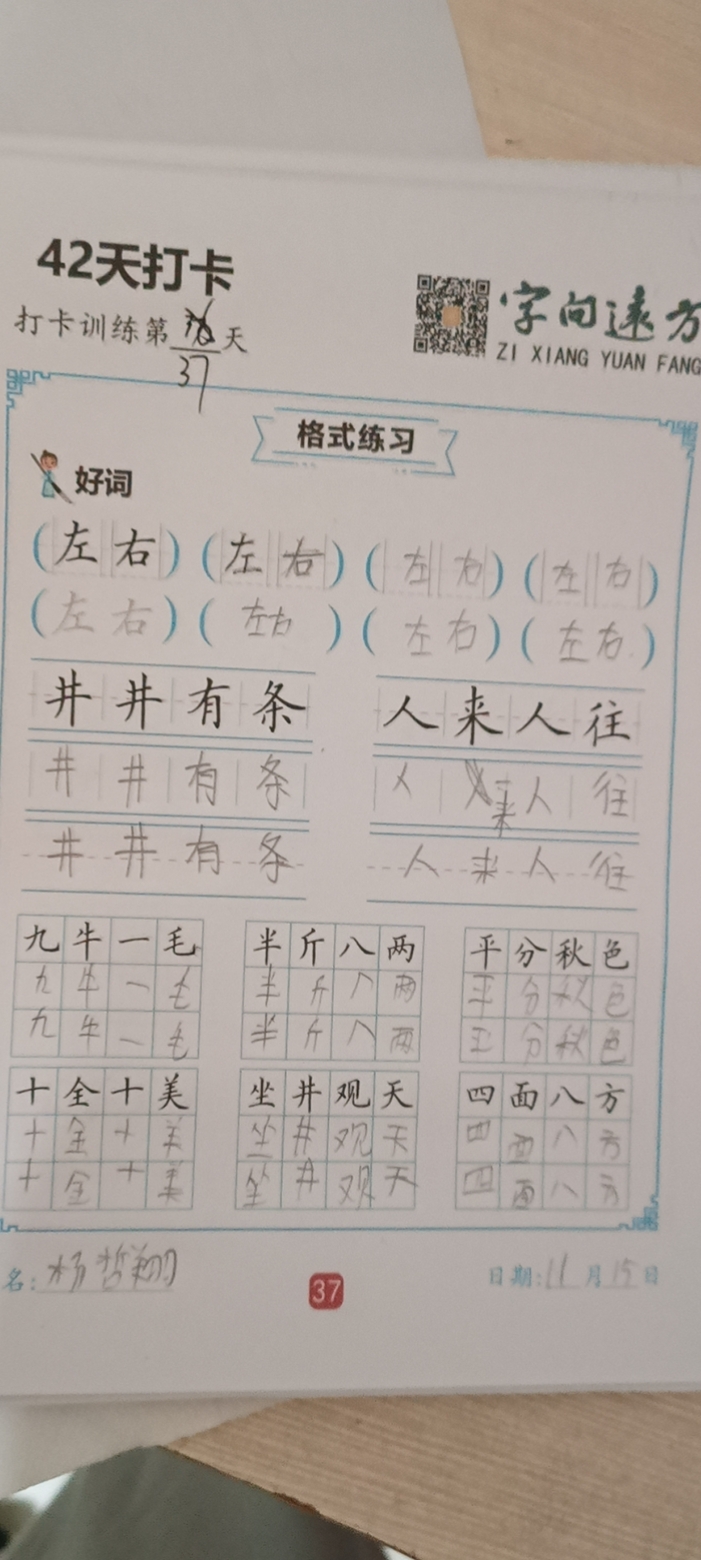 42天打卡
打卡训练第 天
37
字向远方
ZI XIANG YUAN FANG
格式练习
好词
(左右) (左右) (左右) (左右)
(左右) (左右) (左右) (左右)
井井有条 人来人往
井井有条 人 来人往
井井有条 人来人往
九牛一毛 半斤八两 平分秋色
九牛一毛 半斤八两 平分秋色
九牛一毛 半斤八两 平分秋色
十全十美 坐井观天 四面八方
十全十美 坐井观天 四面八方
十全十美 坐井观天 四面八方
名:杨哲翔 37 日期:11月15日